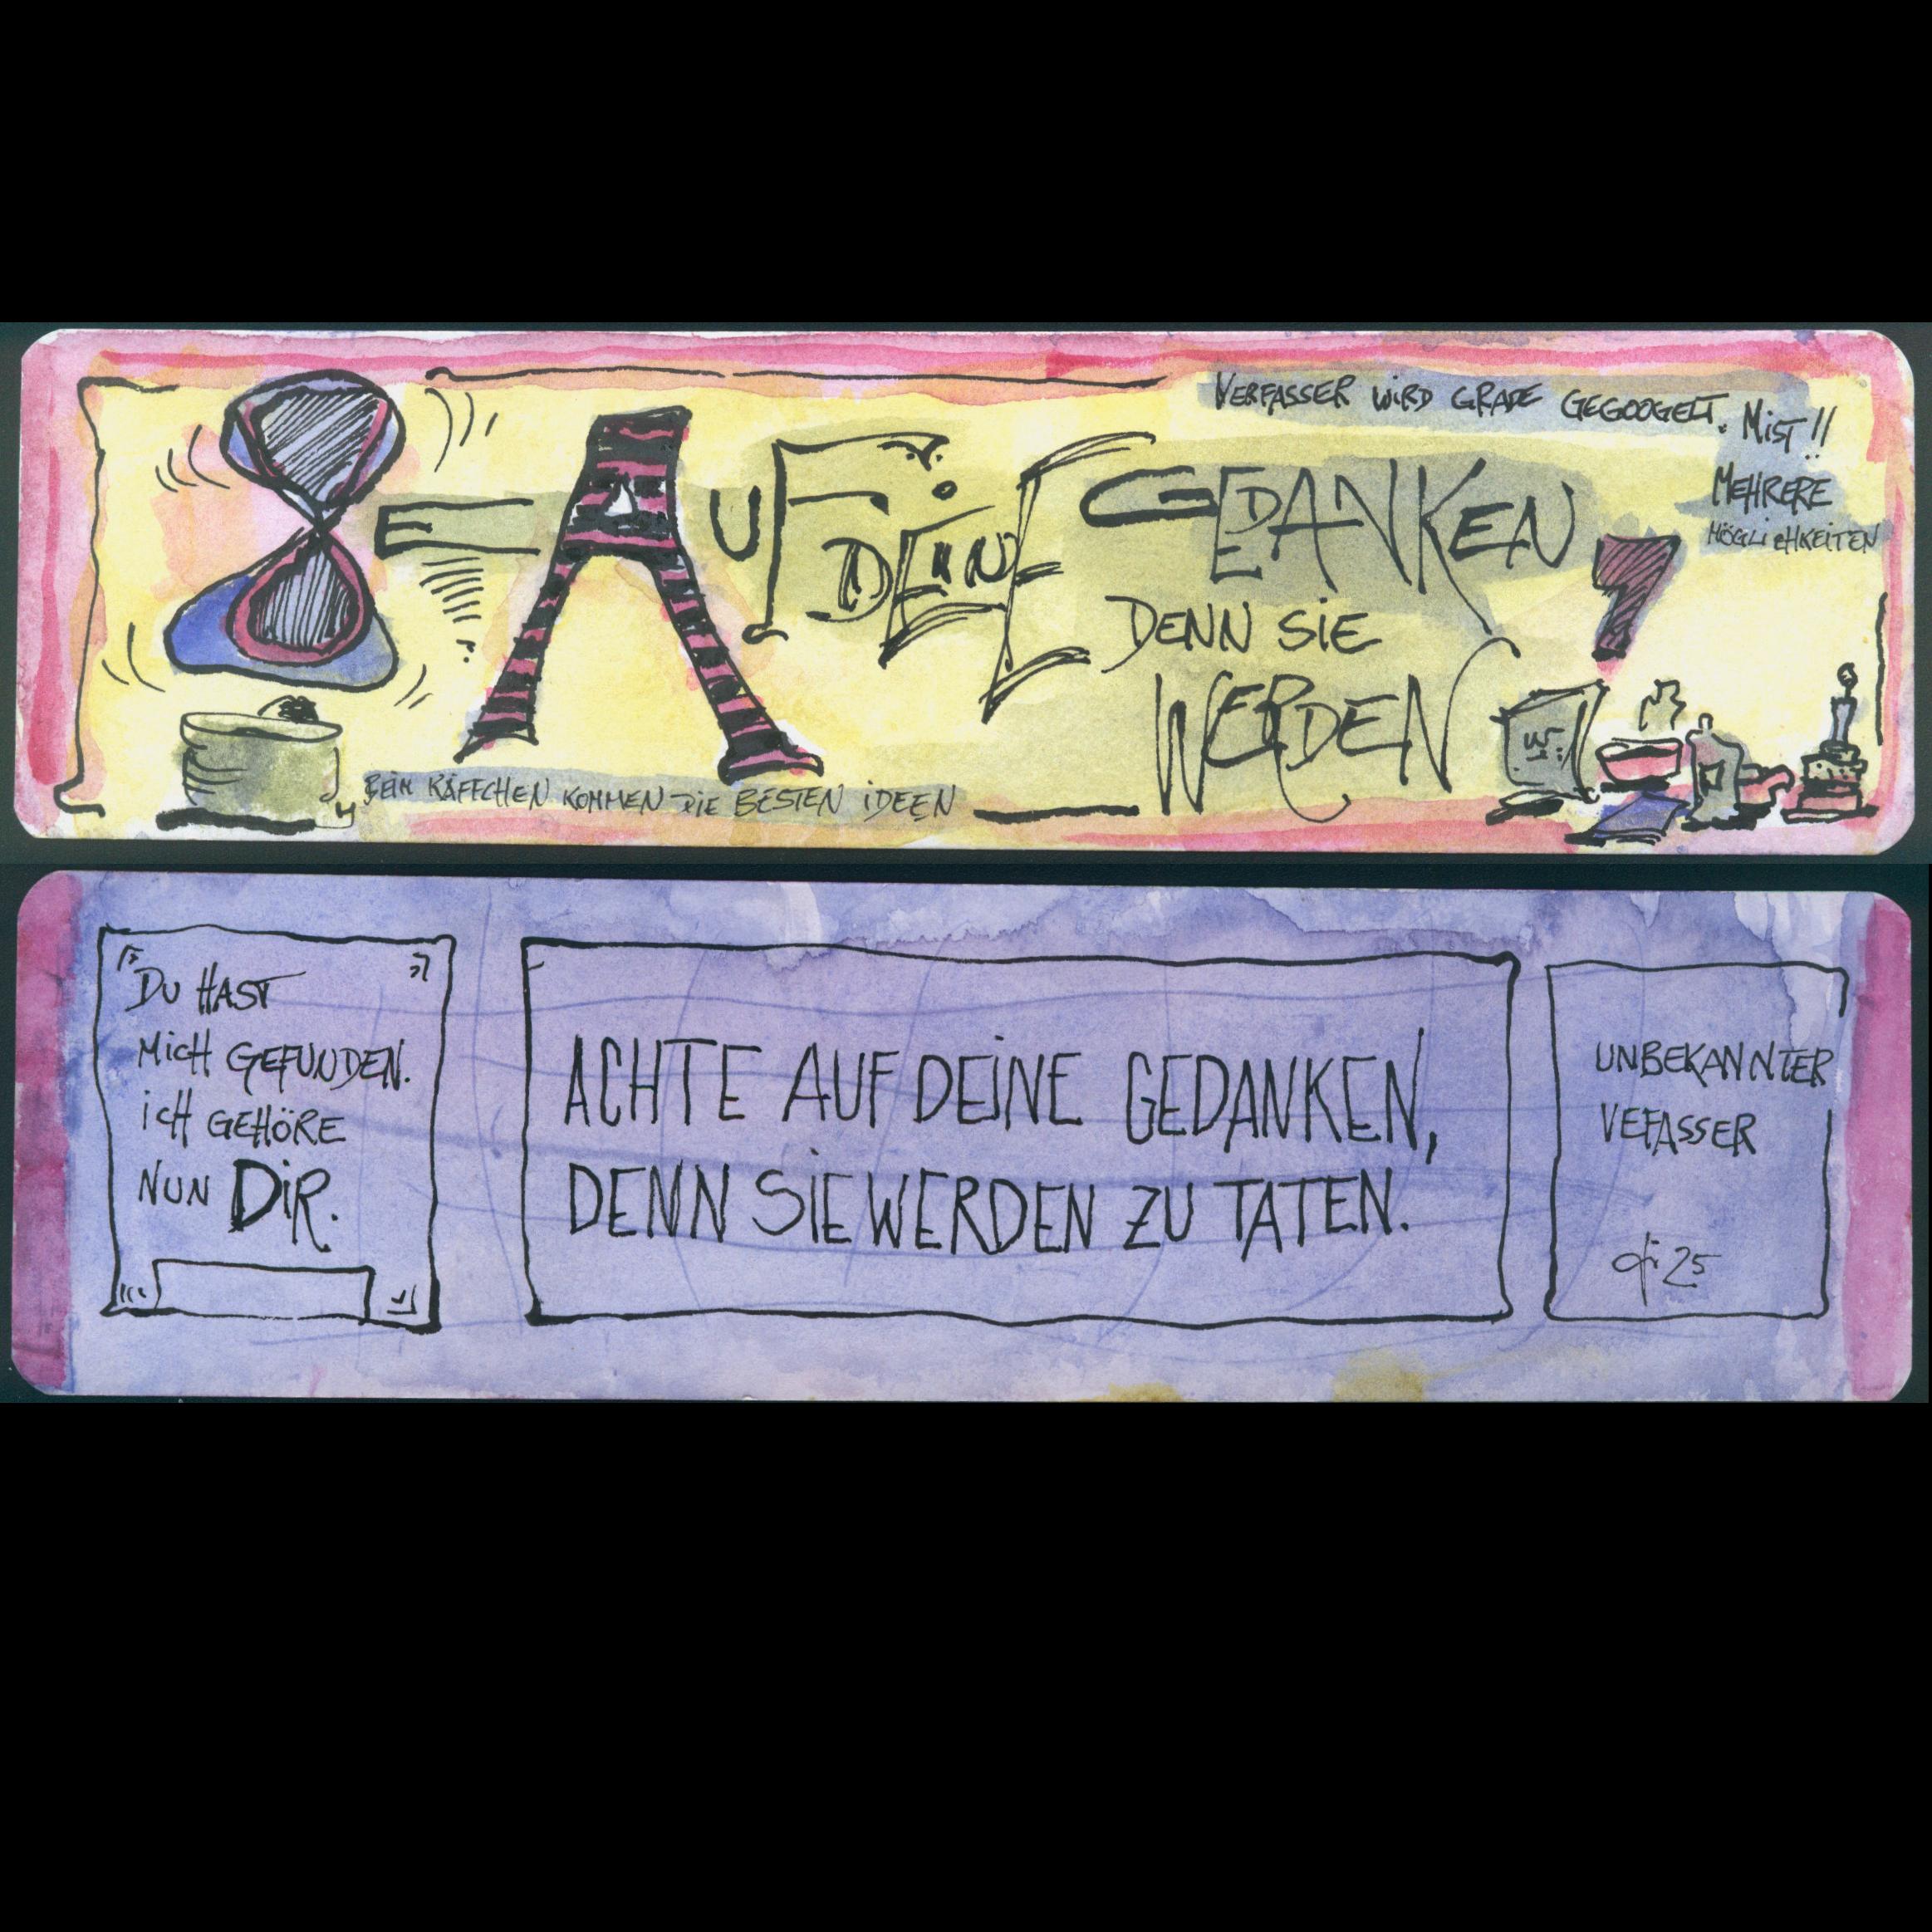 VERFASSER WIRD GRADE GEGOOGELT. MIST!!
MEHRERE
MÖGLICHKEITEN
8E AUF DEINE GEDANKEN,
DENN SIE
WERDEN
BEIM KÄFFCHEN KOMMEN DIE BESTEN IDEEN
DU HAST
MICH GEFUNDEN.
ICH GEHÖRE
NUN DIR.
ACHTE AUF DEINE GEDANKEN,
DENN SIE WERDEN ZU TATEN.
UNBEKANNTER
VEFASSER
25